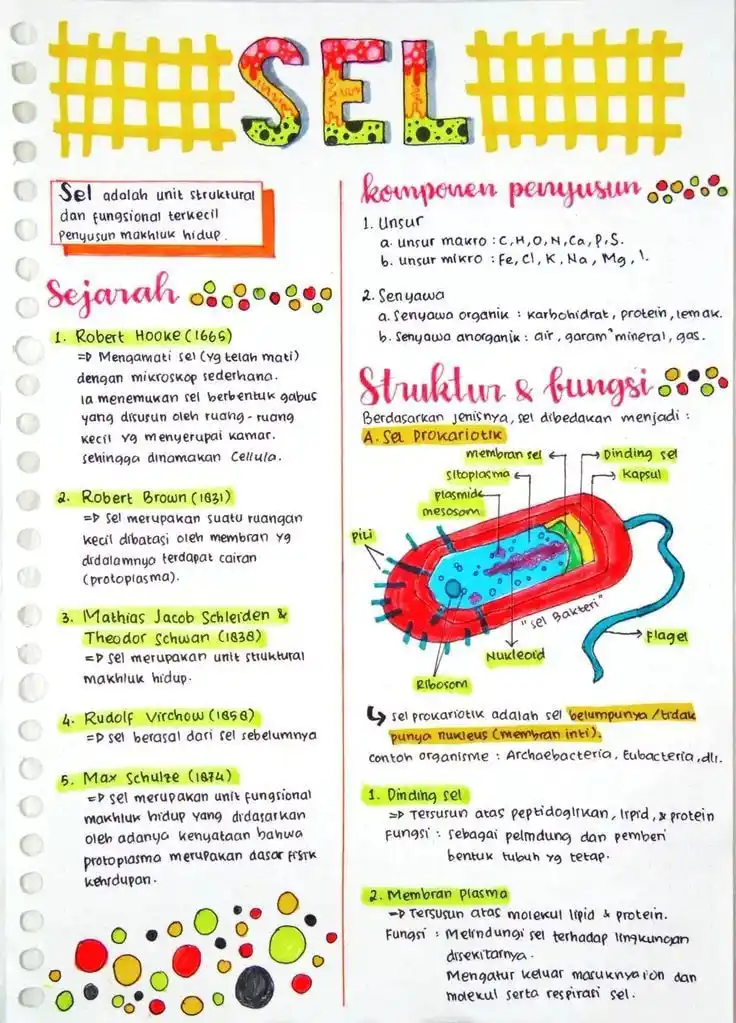 SEL
Sel adalah unit struktural
dan fungsional terkecil
penyusun makhluk hidup.
Sejarah
1. Robert Hooke (1665)
=> Mengamati sel (yg telah mati)
dengan mikroskop sederhana.
Ia menemukan sel berbentuk gabus
yang disusun oleh ruang-ruang
kecil yg menyerupai kamar.
sehingga dinamakan Cellula.
2. Robert Brown (1831)
=> Sel merupakan suatu ruangan
kecil dibatasi oleh membran yg
didalamnya terdapat cairan
(protoplasma).
3. Mathias Jacob Schleiden &
Theodor Schwan (1838)
=> Sel merupakan unit struktural
makhluk hidup.
4. Rudolf Virchow (1858)
=> sel berasal dari sel sebelumnya
5. Max Schulze (1874)
=> Sel merupakan unit fungsional
makhluk hidup yang didasarkan
oleh adanya kenyataan bahwa
protoplasma merupakan dasar fisik
kehidupan.
komponen penyusun
1. Unsur
a. unsur makro : C, H, O, N, Ca, P, S.
b. unsur mikro : Fe, Cl, K, Na, Mg, I.
2. Senyawa
a. Senyawa organik : karbohidrat, protein, lemak.
b. Senyawa anorganik : air, garam mineral, gas.
Struktur & fungsi
Berdasarkan jenisnya, sel dibedakan menjadi :
A. Sel Prokariotik
membran sel
Dinding sel
sitoplasma
Kapsul
plasmid
mesosom
pili
"Sel Bakteri"
Flagel
Nukleoid
Ribosom
sel prokariotik adalah sel belumpunya/tidak
punya nukleus (membran inti).
contoh organisme : Archaebacteria, Eubacteria, dll.
1. Dinding sel
=> Tersusun atas peptidoglikan, lipid, & protein
Fungsi : sebagai pelindung dan pemberi
bentuk tubuh yg tetap.
2. Membran Plasma
=> Tersusun atas molekul lipid & protein.
Fungsi : Melindungi sel terhadap lingkungan
disekitarnya.
Mengatur keluar masuknya ion dan
molekul serta respirasi sel.